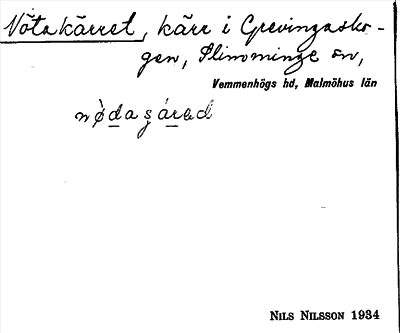 Vöta kärret, kärr i Grevingasko-
gen, Slimminge sn,
Vemmenhögs hd, Malmöhus län
NILS NILSSON 1934